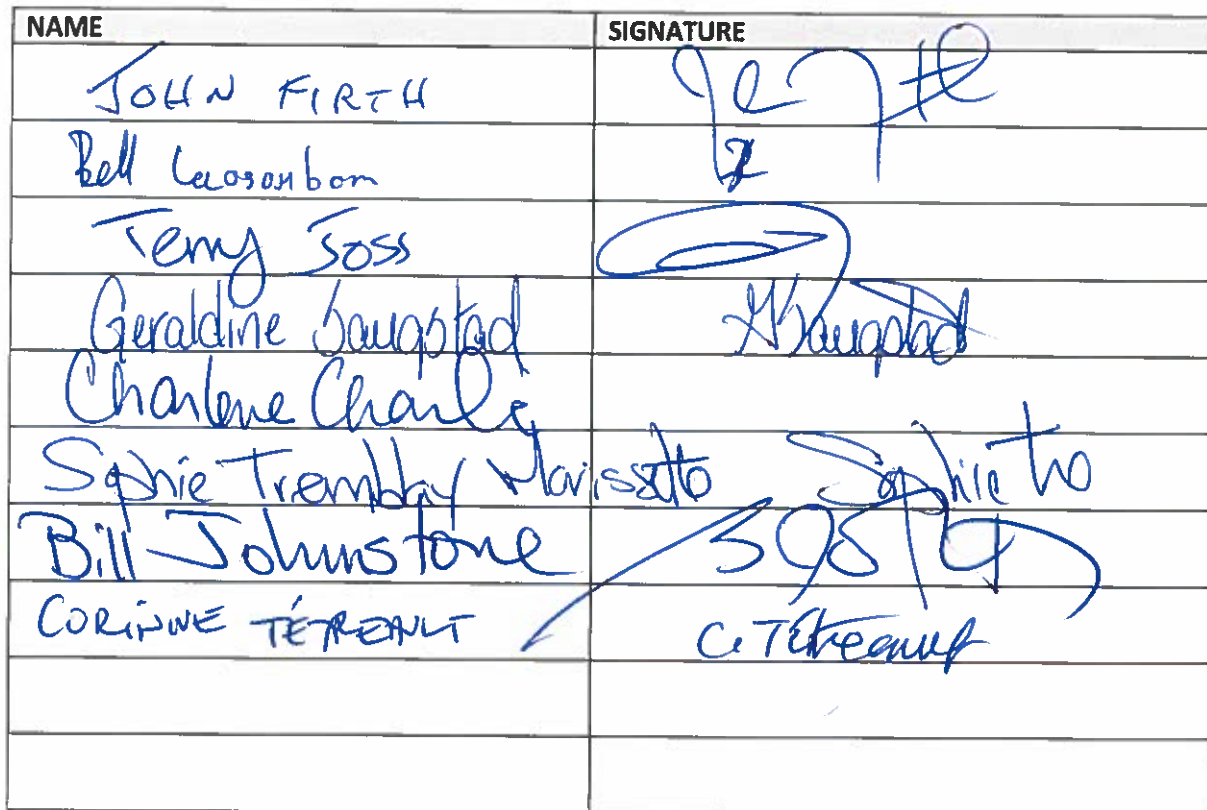 NAME SIGNATURE
JOHN FIRTH
Bell
Terry Joss
Geraldine Saugstad GSaugstad
Charlene Charlie
Sophie Tremblay Morissette Sophie
Bill Johnstone
CORINNE TÉTREAULT C. Tétreault